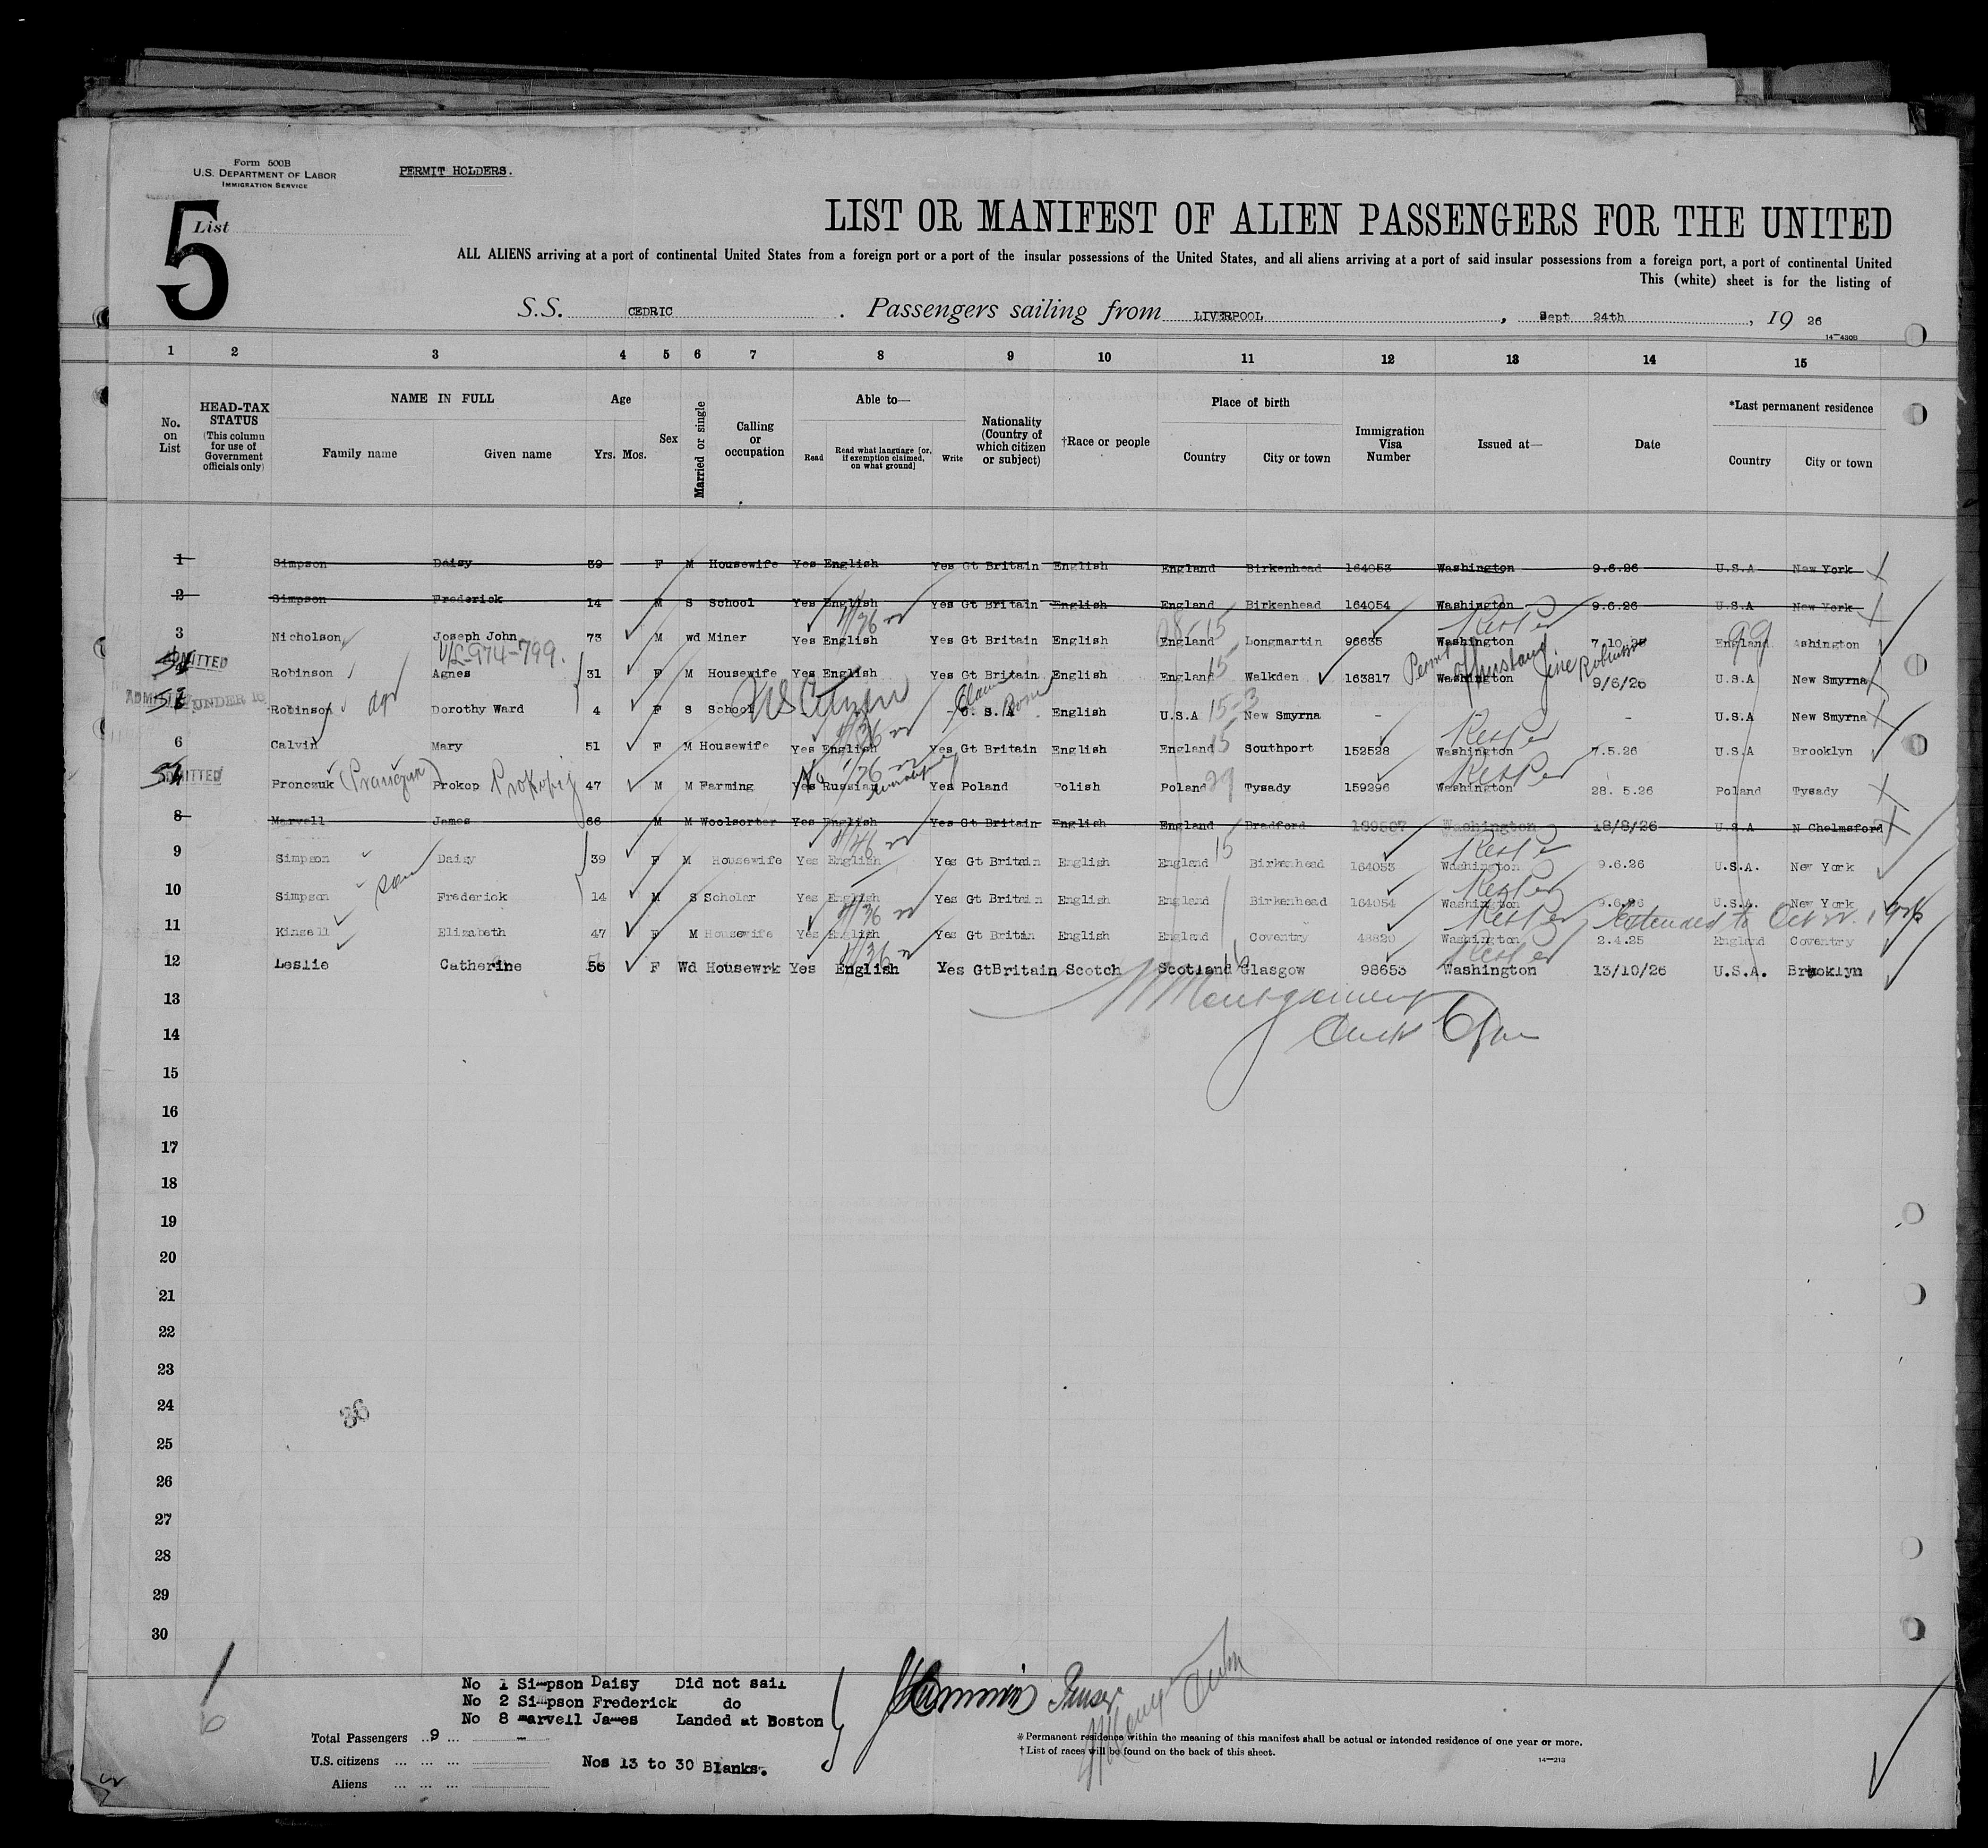 Form 500B
U.S. DEPARTMENT OF LABOR
IMMIGRATION SERVICE
PERMIT HOLDERS.
5
List
LIST OR MANIFEST OF ALIEN PASSENGERS FOR THE UNITED
ALL ALIENS arriving at a port of continental United States from a foreign port or a port of the insular possessions of the United States, and all aliens arriving at a port of said insular possessions from a foreign port, a port of continental United
This (white) sheet is for the listing of
S.S. CEDRIC . Passengers sailing from LIVERPOOL , Sept 24th , 19 26
14-430B
1 2 3 4 5 6 7 8 9 10 11 12 13 14 15
No. on List
HEAD-TAX STATUS (This column for use of Government officials only)
NAME IN FULL
Family name Given name
Age
Yrs. Mos.
Sex
Married or single
Calling or occupation
Able to—
Read Read what language [or, if exemption claimed, on what ground] Write
Nationality (Country of which citizen or subject)
†Race or people
Place of birth
Country City or town
Immigration Visa Number
Issued at—
Date
*Last permanent residence
Country City or town
1 Simpson Daisy 39 F M Housewife Yes English Yes Gt Britain English England Birkenhead 164053 Washington 9.6.26 U.S.A New York
2 Simpson Frederick 14 M S School Yes English Yes Gt Britain English England Birkenhead 164054 Washington 9.6.26 U.S.A New York
3 Nicholson Joseph John 73 M wd Miner Yes English Yes Gt Britain English England Longmartin 96635 Washington 7.10.25 England Ashington
V/L-974-799.
ADMITTED
Robinson Agnes 31 F M Housewife Yes English Yes Gt Britain English England 15 Walkden 163817 Washington 9/6/26 U.S.A New Smyrna
UNDER 16
Robinson dgr Dorothy Ward 4 F S School US Citizen - U. S. A English U.S.A 15-3 New Smyrna - - U.S.A New Smyrna
6 Calvin Mary 51 F M Housewife Yes English Yes Gt Britain English England 15 Southport 152528 Washington 7.5.26 U.S.A Brooklyn
ADMITTED
Pronczuk Prokop 47 M M Farming Yes Russian Yes Poland Polish Poland 29 Tysady 159296 Washington 28. 5.26 Poland Tysady
8 Marvell James 66 M M Woolsorter Yes English Yes Gt Britain English England Bradford Washington 18/8/26 U.S.A N Chelmsford
9 Simpson Daisy 39 F M Housewife Yes English Yes Gt Britain English England 15 Birkenhead 164053 Washington 9.6.26 U.S.A. New York
10 Simpson son Frederick 14 M S Scholar Yes English Yes Gt Britain English England Birkenhead 164054 Washington 9.6.26 U.S.A. New York
11 Kinsell Elizabeth 47 F M Housewife Yes English Yes Gt Britin English England Coventry 48820 Washington 2.4.25 England Coventry
12 Leslie Catherine 56 F Wd Housewrk Yes English Yes GtBritain Scotch Scotland Glasgow 98653 Washington 13/10/26 U.S.A. Brooklyn
13
14
15
16
17
18
19
20
21
22
23
24
25
26
27
28
29
30
36
No 1 Simpson Daisy Did not sail
No 2 Simpson Frederick do
No 8 marvell James Landed at Boston
Total Passengers 9
U.S. citizens
Aliens
Nos 13 to 30 Blanks.
* Permanent residence within the meaning of this manifest shall be actual or intended residence of one year or more.
† List of races will be found on the back of this sheet.
14-213